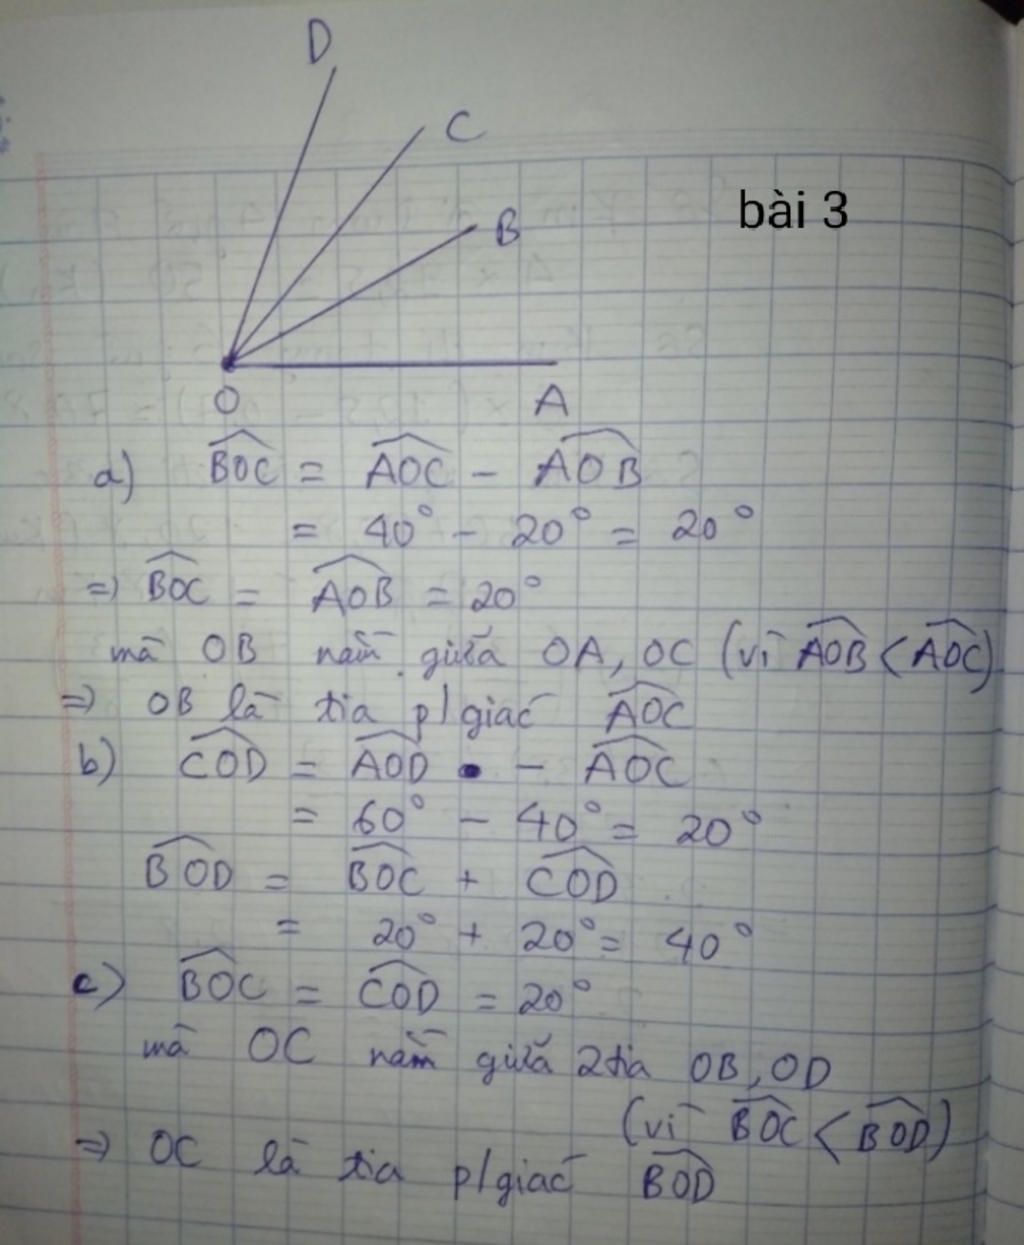 D
C
bài 3
B
O
A
a) BOC = AOC - AOB
= 40° - 20° = 20°
=> BOC = AOB = 20°
mà OB nằm giữa OA, OC (vì AOB < AOC)
=> OB là tia p/giác AOC
b) COD = AOD - AOC
= 60° - 40° = 20°
BOD = BOC + COD
= 20° + 20° = 40°
c) BOC = COD = 20°
mà OC nằm giữa 2 tia OB, OD
(vì BOC < BOD)
=> OC là tia p/giác BOD